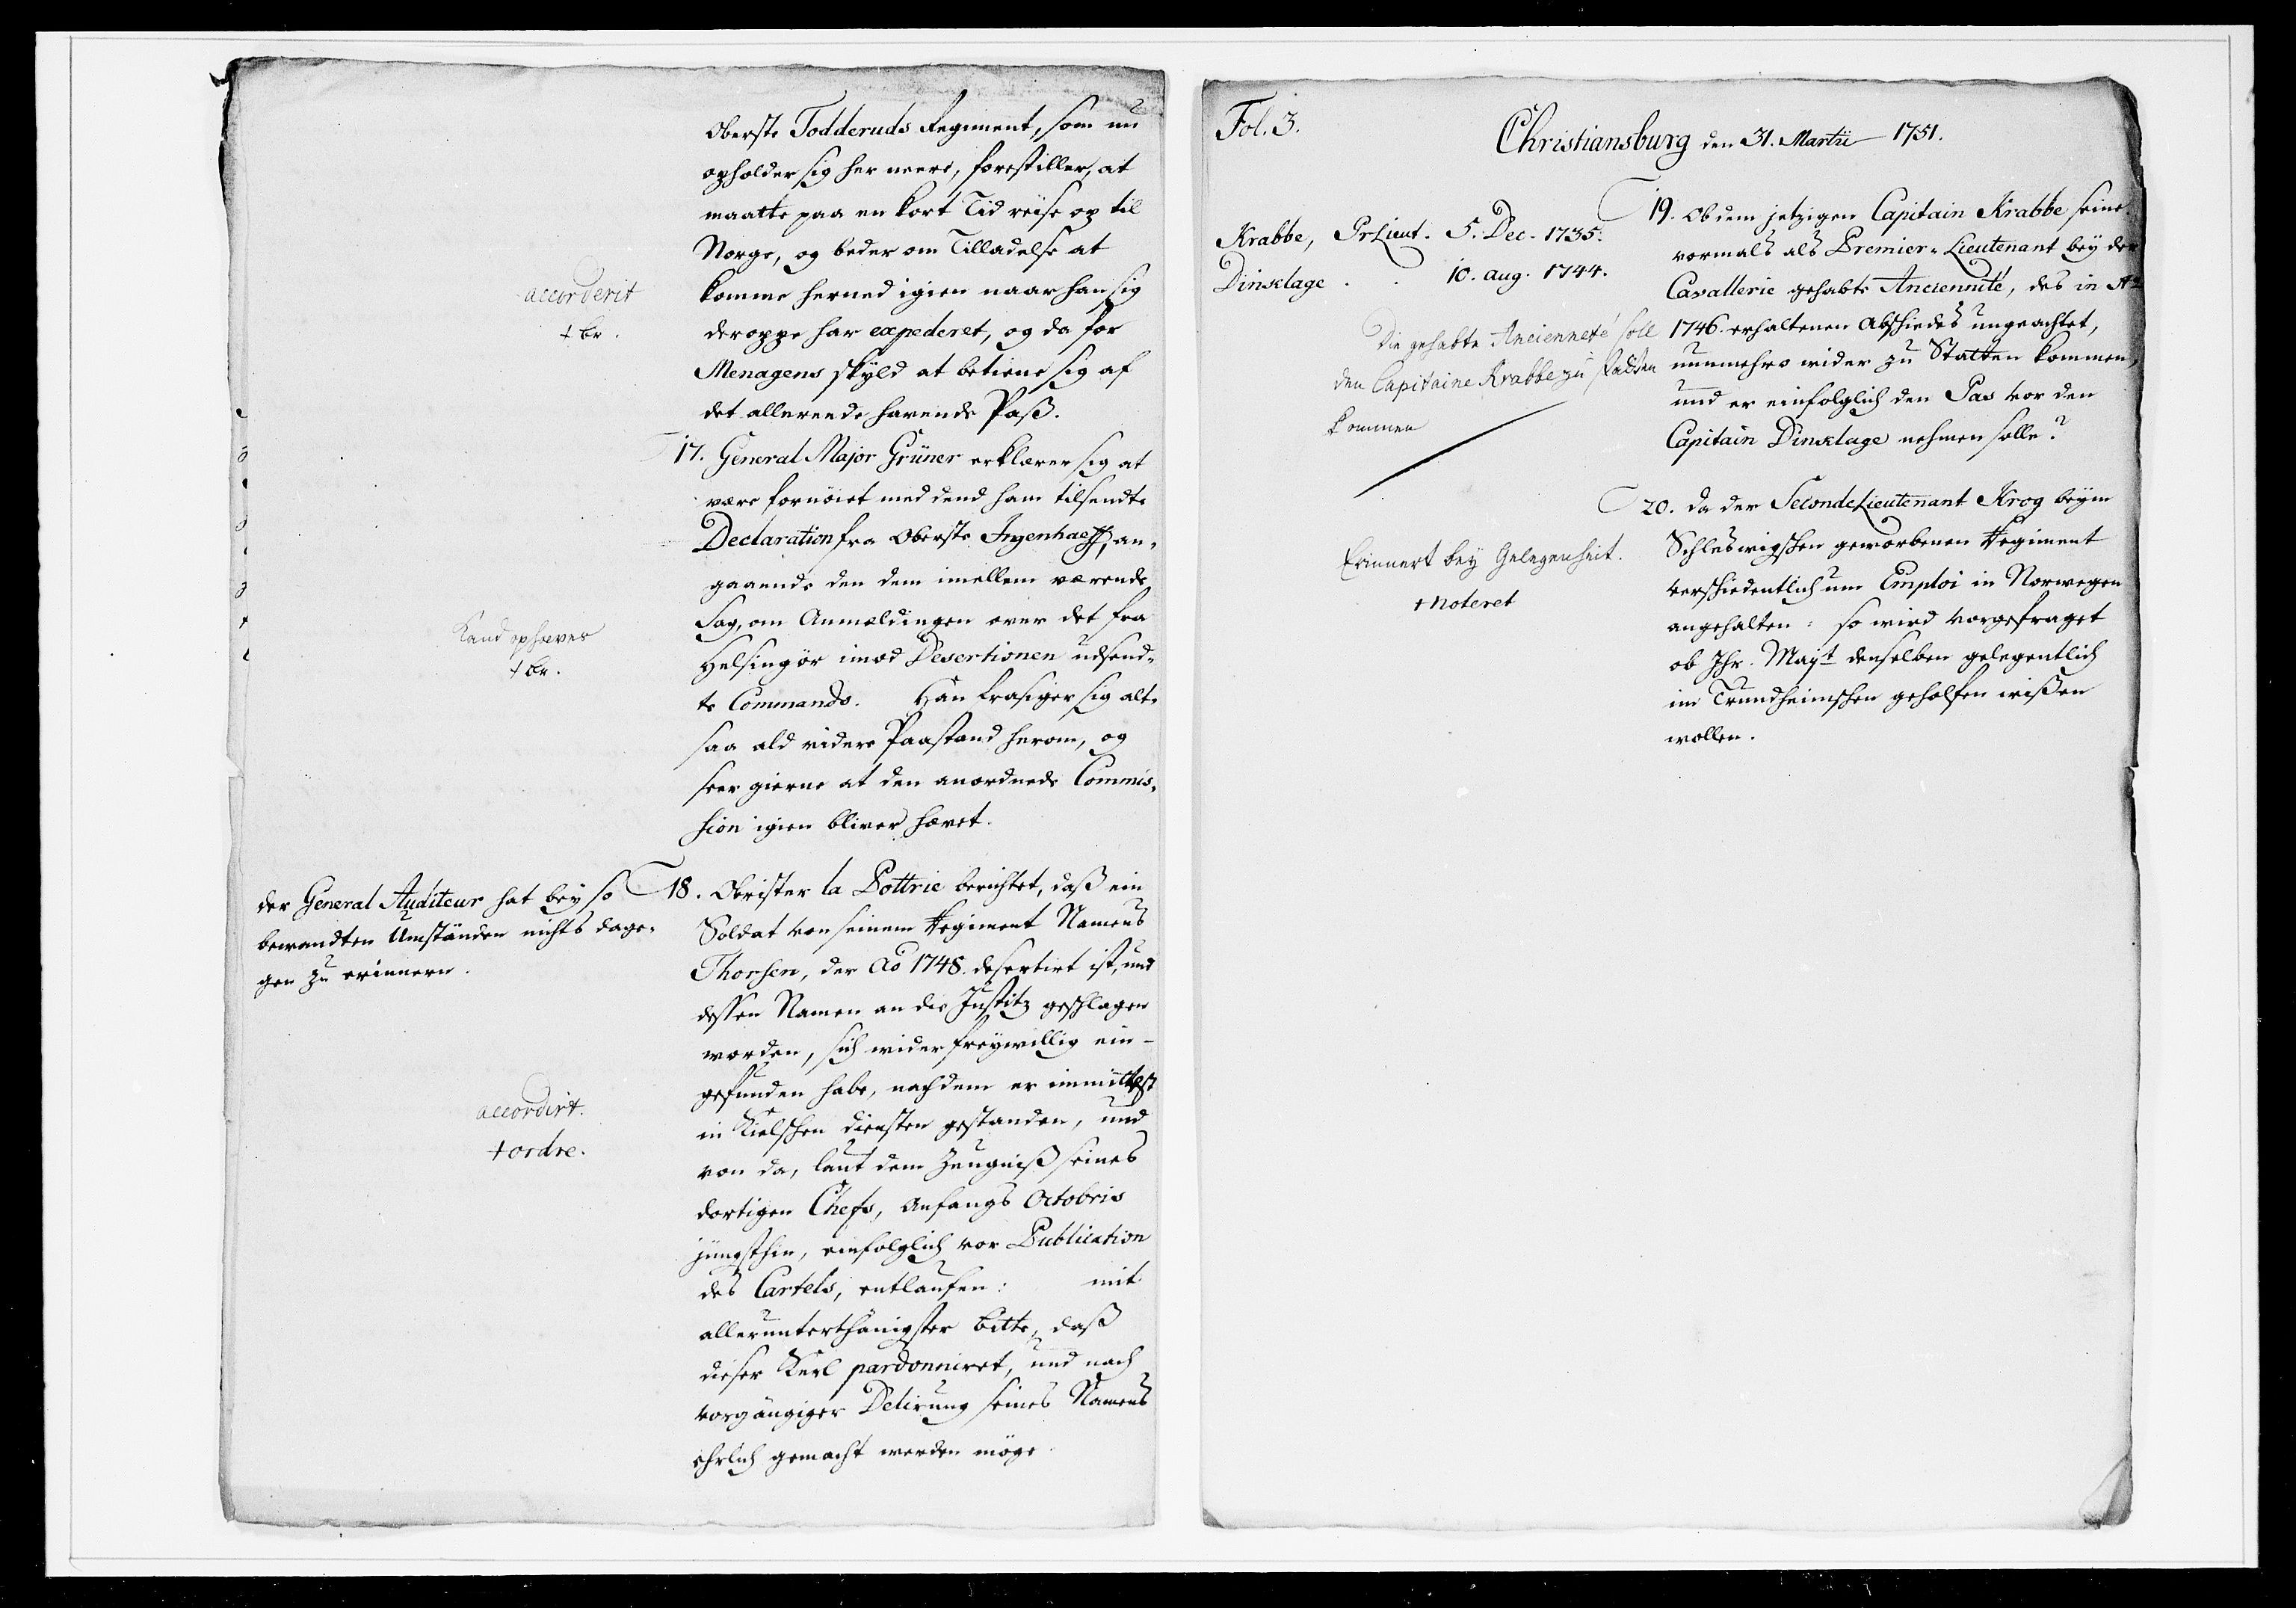 Oberste Todderuds Regiment, som nu
opholder sig her neere, forestiller, at
maatte paa en kort Tid reise op til
Norge, og beder om Tilladelse at
komme herned igien naar han sig
deroppe har expederet, og da for
Menagens skyld at betiene sig af
det allerede havende Paß.
accorderit
+ br.
17. General Major Grüner erklærer sig at
være fornöiet med dend ham tilsendte
Declaration fra Oberste Ingenhaeff, an-
gaaende den dem imellem værende
Sag, om Anmældingen over det fra
Helsingör imod Desertionen udsend-
te Commando. Han frasiger sig alt-
saa ald videre Paastand herom, og
seer gierne at den anordnede Commis-
sion igien bliver hævet.
Kand ophæves
+ br.
18. Obrister la Pottrie berichtet, daß ein
Soldat von seinem Regiment Namens
Thorsen, der Ao 1748. desertirt ist, und
dessen Namen an die Justitz geschlagen
worden, sich wider freywillig ein-
gefunden habe, nachdem er immittelst
in Kielschen diensten gestanden, und
von da, laut dem Zeugniß seines
dortigen Chefs, Anfangs Octobris
jüngsthin, einfolglich vor Publication
des Cartels, entlaufen: mit
allerunterthänigster bitte, daß
dieser Kerl pardonniret, und nach
vorgängiger Delirung seines Namens
ehrlich gemacht werden möge
der General Auditeur hat bey so
bewandten Umständen nichts dage-
gen zu erinnern.
accordirt.
+ ordre.
Fol. 3.
Christiansburg den 31. Martii 1751.
19. Ob dem jetzigen Capitain Krabbe seine
vormals als Premier-Lieutenant bey der
Cavallerie gehabte Anciennité, des in Ao
1746. erhaltenen Abschiedes ungeachtet,
nunmehro wider zu Statten kommen,
und er einfolglich den Pas vor den
Capitain Dinxlage nehmen solle?
Krabbe, PrLieut. 5. Dec. 1735.
Dinxlage . . 10. aug. 1744.
Die gehabte Ancienneté soll
den Capitaine Krabbe zu statten
kommen
20. da der SecondeLieutenant Krog beym
Schleswigschen geworbenen Regiment
verschiedentlich um Emploi in Norwegen
angehalten: so wird vorgefraget
ob Ihr. Mayt denselben gelegentlich
im Trundheimschen geholfen wißen
wollen.
Erinnert bey Gelegenheit.
+ noteret